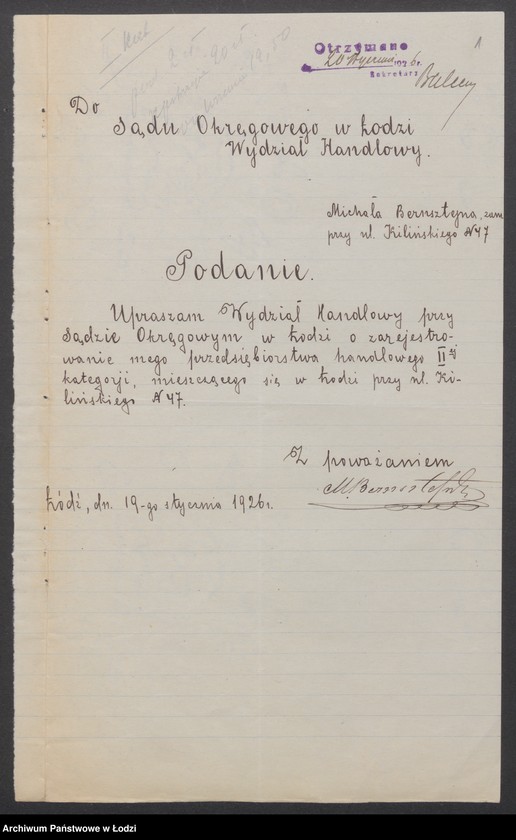 II kat
1
Otrzymano
20 stycznia 1926 r.
Sekretarz
Do
Sądu Okręgowego w Łodzi
Wydział Handlowy.
Michała Bernsztejna, zam.
przy ul. Kilińskiego N 47
Podanie.
Upraszam Wydział Handlowy przy
Sądzie Okręgowym w Łodzi o zarejestro-
wanie mego przedsiębiorstwa handlowego II ej
kategorji, mieszczącego się w Łodzi przy ul. Ki-
lińskiego N 47.
Z poważaniem
MBernsztejn
Łódź, dn. 19-go stycznia 1926 r.
Archiwum Państwowe w Łodzi